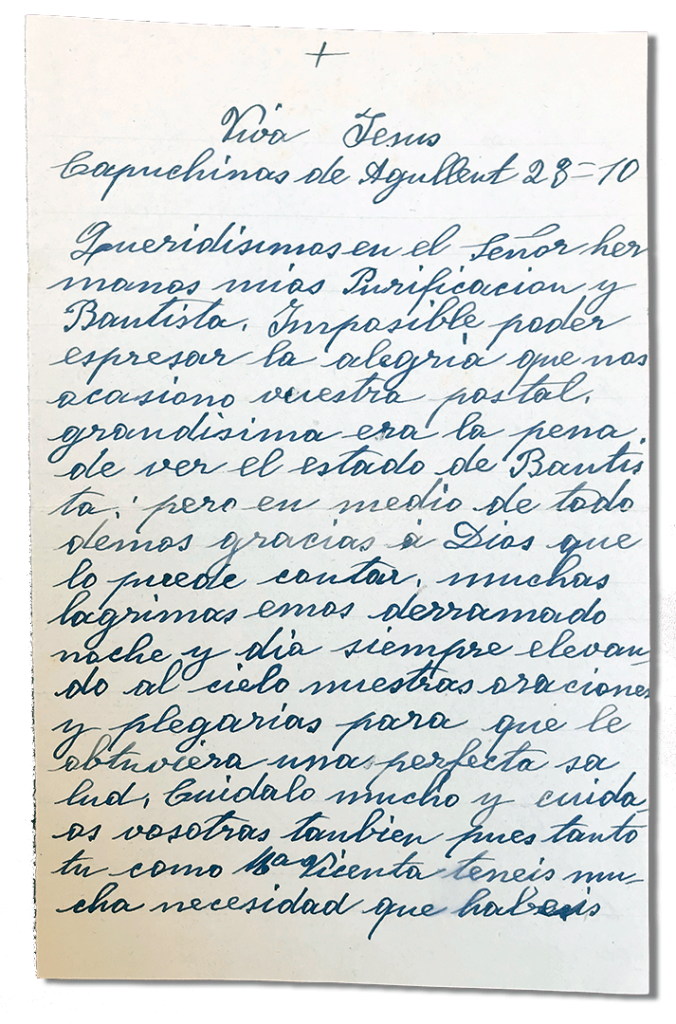 +
Viva Jesus
Capuchinas de Agullent 28=10
Queridisimos en el Señor her
manos mios Purificacion y
Bautista. Imposible poder
espresar la alegria que nos
ocasiono vuestra postal.
grandisima era la pena
de ver el estado de Bautis
ta. pero en medio de todo
demos gracias a Dios que
lo puede contar, muchas
lagrimas emos derramado
noche y dia siempre elevan
do al cielo nuestras oraciones
y plegarias para que le
obtuviera una perfecta sa
lud. Cuidalo mucho y cuida
os vosotras tanbien pues tanto
tu como Mª Vicenta teneis mu-
cha necesidad que